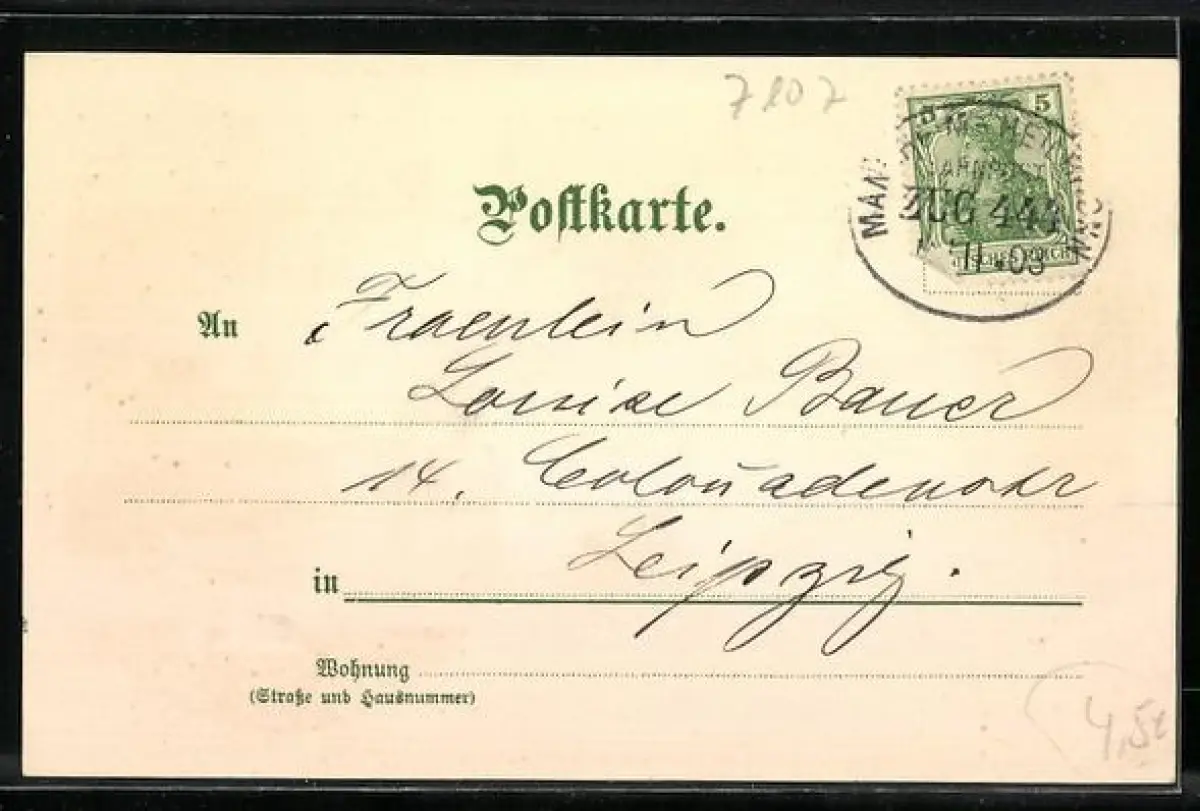 7107
5
ZUG 444
11 03
Postkarte.
An Fraeulein
Louise Bauer
14. Colonadenstr
in Leipzig.
Wohnung
(Straße und Hausnummer)